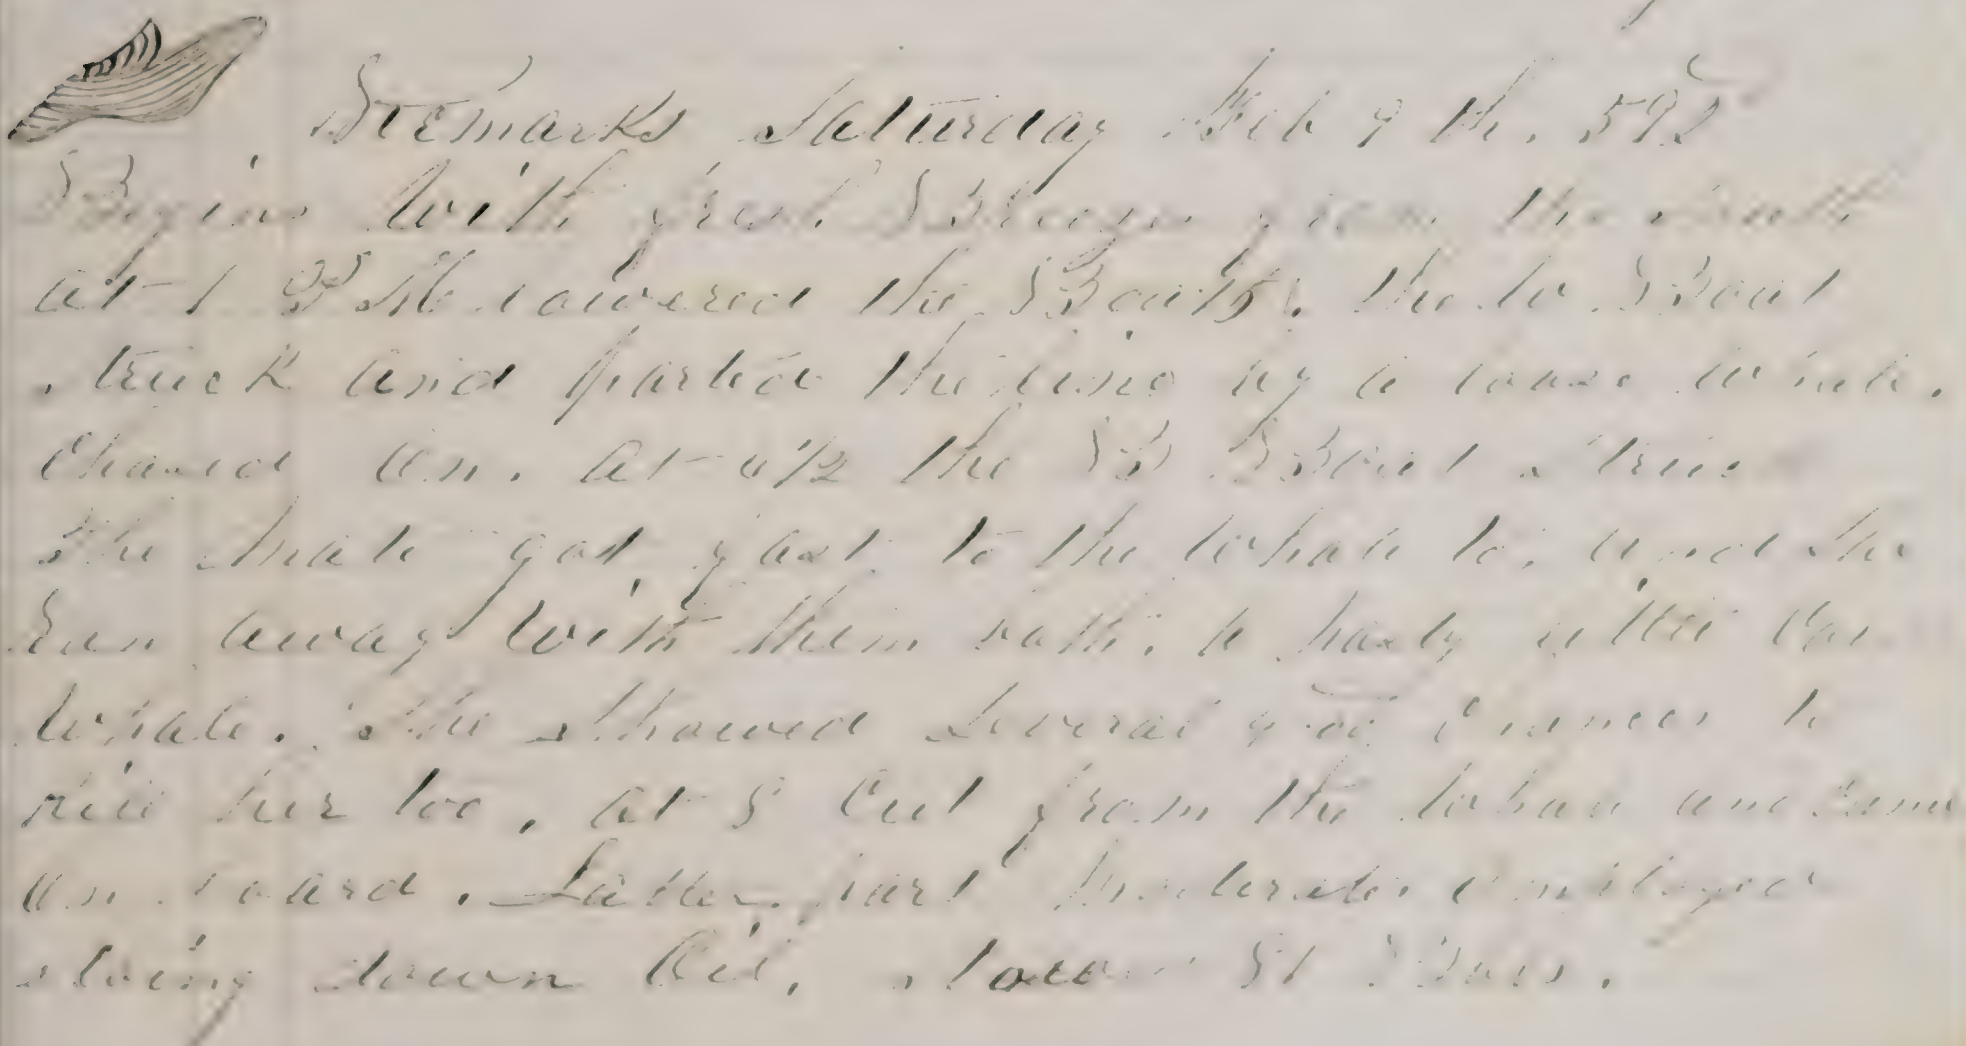 Remarks Saturday Feb 9 th. 592
Begins With fresh Breeze from the South
at 1 PM lowered the Boats. the W Boat
struck and parted the line by a loose whale.
Chased on. at 4½ the SB Boat Struck
the Mate got fast to the Whale to, and she
Run away With them both. a hasty
Whale. She Showed Several good Chances to
Kill her too, at 5 Cut from the Whale and Came
on board. Latter part Moderate employed
stowing down Oil, stowed 51 Bbls.